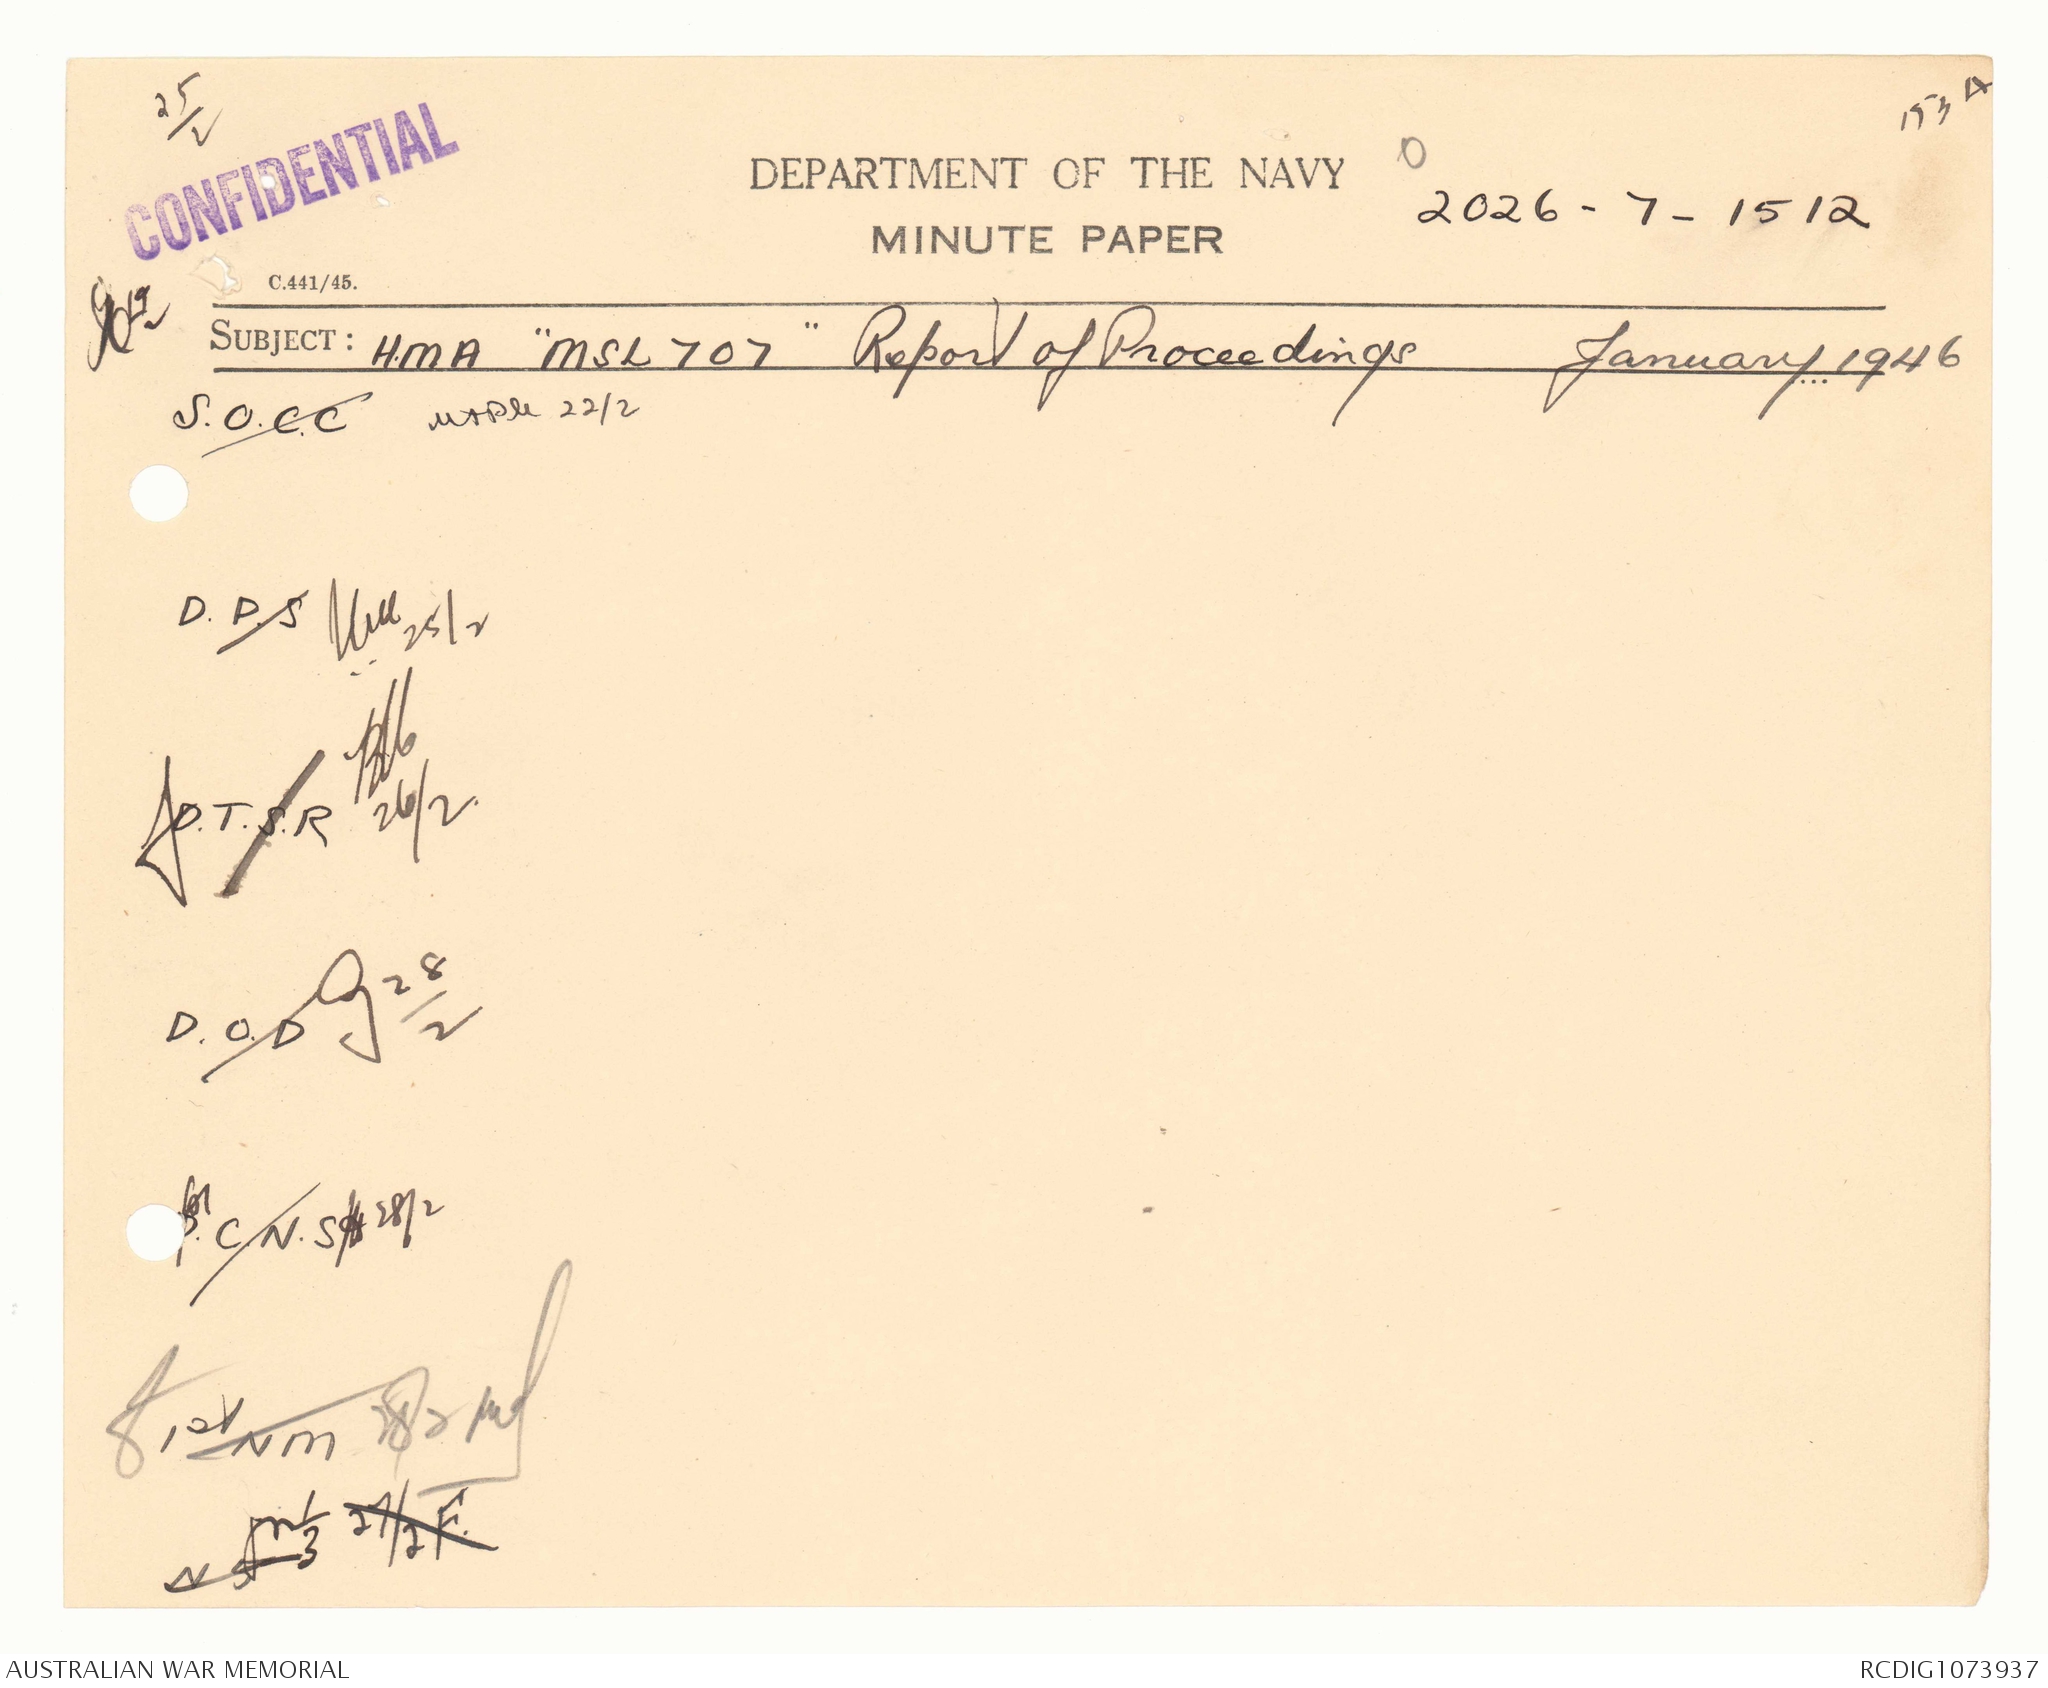 25/2
153 A
CONFIDENTIAL
DEPARTMENT OF THE NAVY
2026-7-1512
MINUTE PAPER
C.441/45.
19/2
SUBJECT: H.M.A "MSL 707" Report of Proceedings January 1946
S.O.C.C 22/2
D.P.S 25/2
D.T.S.R 26/2.
D.O.D 28/2
C.N.S 28/2
1st NM 28/2
1/3 27/2 F.
AUSTRALIAN WAR MEMORIAL
RCDIG1073937